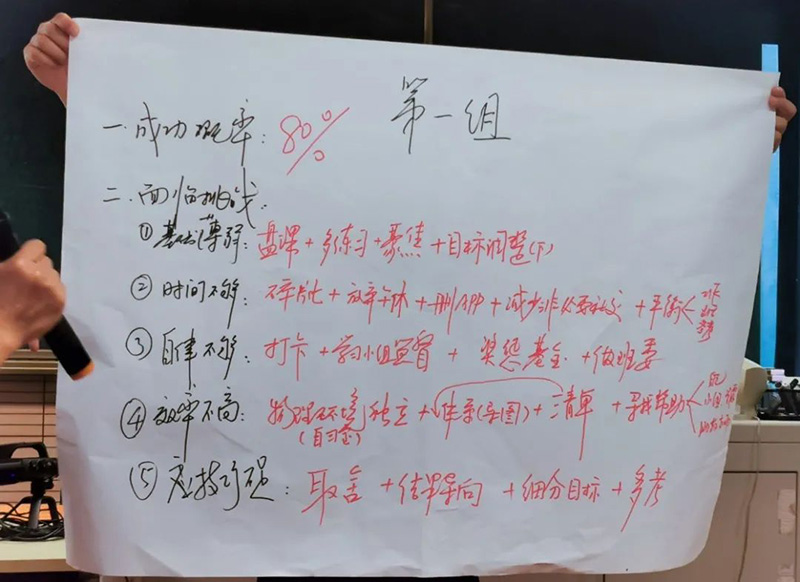 第一组
一.成功概率：80%
二.面临挑战：
①基础薄弱：盘课+多练习+聚焦+目标调整(下)
②时间不够：碎片化+放弃午休+删APP+减少非必要社交+平衡
③自律不够：打卡+学习小组监督+奖惩基金+做班委
④效率不高：物理环境独立+体系(导图)+清单+寻找帮助
(自习室)
⑤应技巧强：取舍+结果导向+细分目标+多考